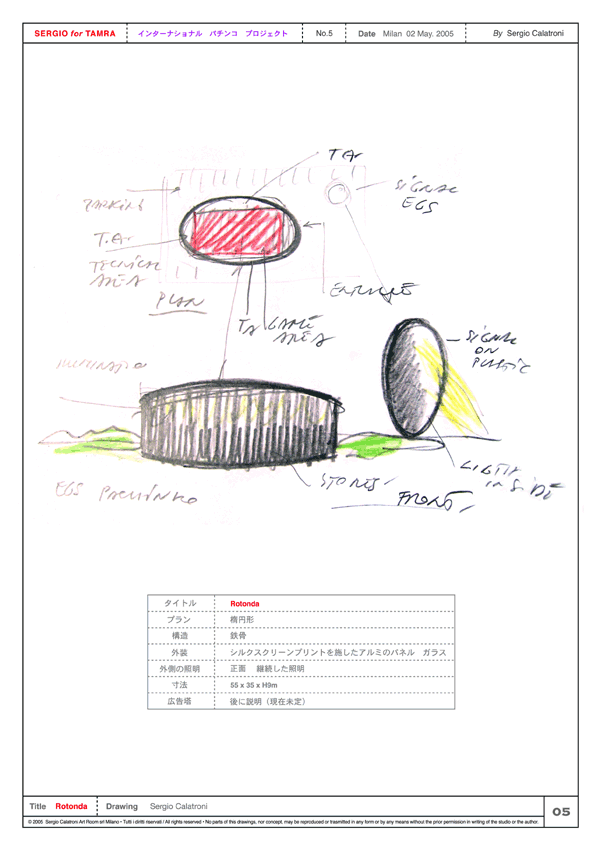 SERGIO for TAMRA
インターナショナル パチンコ プロジェクト
No.5
Date Milan 02 May. 2005
By Sergio Calatroni
T.A
SIGNAL
EGS
PARKING
T.A
TECNICAL
AREA
PLAN
TA GAME
AREA
SIGNAL
ON
EGS PACHINKO
STORES
FRONT
LIGTH
INSIDE
タイトル Rotonda
プラン 楕円形
構造 鉄骨
外装 シルクスクリーンプリントを施したアルミのパネル ガラス
外側の照明 正面 継続した照明
寸法 55 x 35 x H9m
広告塔 後に説明（現在未定）
Title Rotonda Drawing Sergio Calatroni
05
© 2005 Sergio Calatroni Art Room srl Milano • Tutti i diritti riservati / All rights reserved • No parts of this drawings, nor concept, may be reproduced or trasmitted in any form or by any means without the prior permission in writing of the studio or the author.